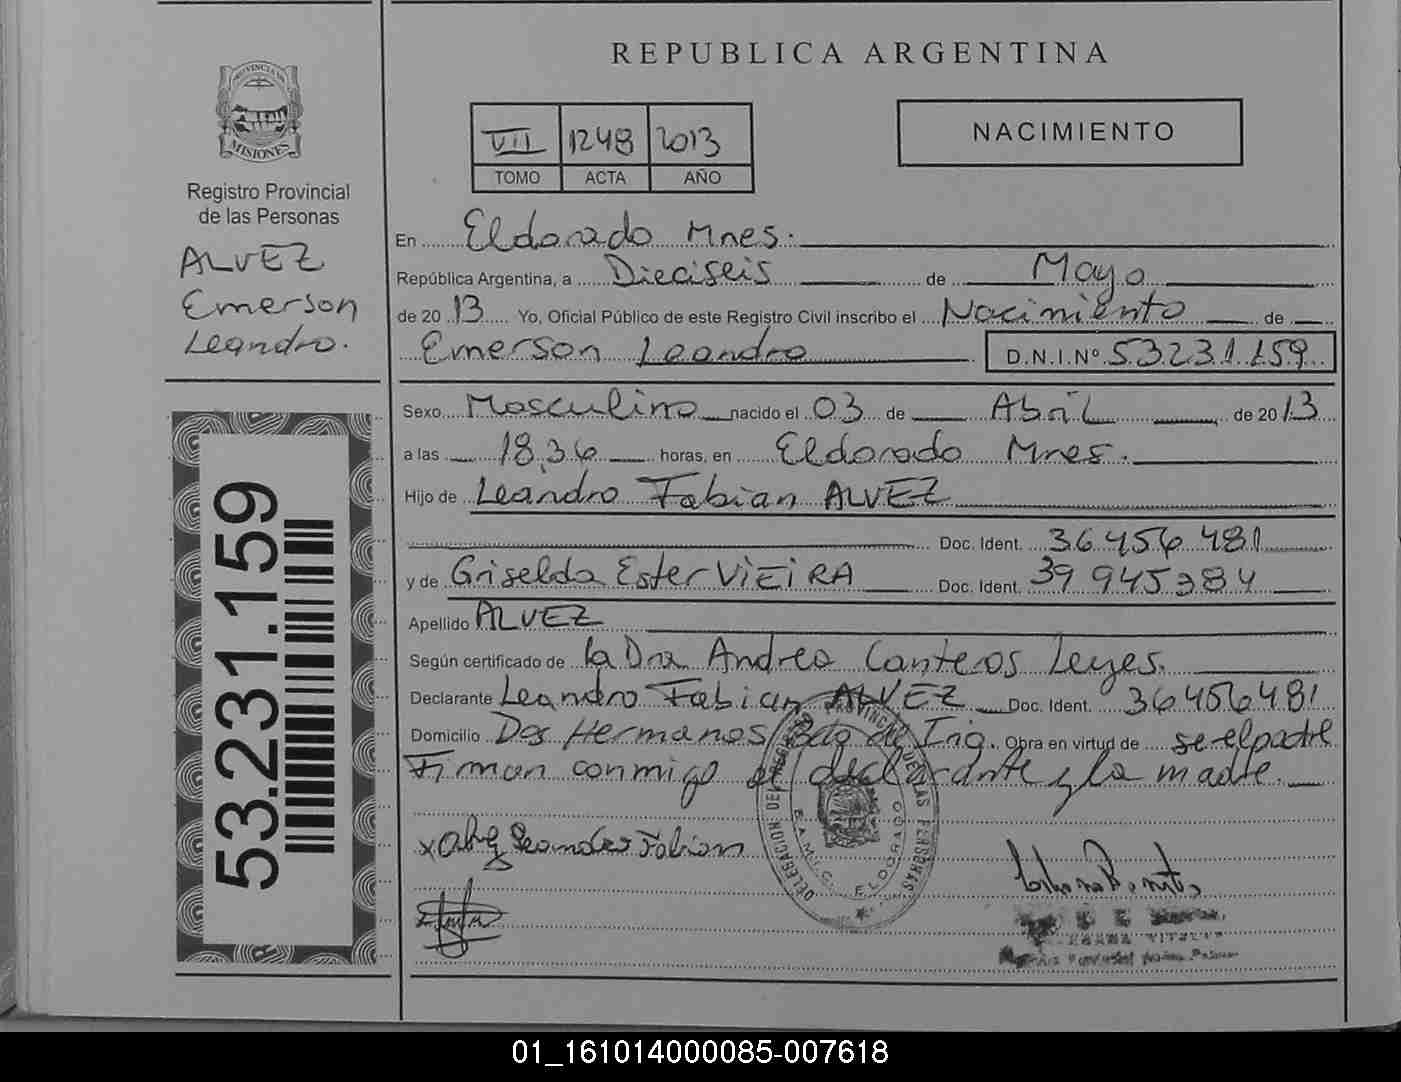 REPUBLICA ARGENTINA
PROVINCIA DE
MISIONES
Registro Provincial
de las Personas
ALVEZ
Emerson
Leandro.
53.231.159
VII 1248 2013
TOMO ACTA AÑO
NACIMIENTO
En Eldorado Mnes.
República Argentina, a Dieciseis de Mayo
de 2013 Yo, Oficial Público de este Registro Civil inscribo el Nacimiento de
Emerson Leandro D.N.I.Nº 53231159
Sexo Masculino nacido el 03 de Abril de 2013
a las 18,36 horas, en Eldorado Mnes.
Hijo de Leandro Fabian ALVEZ
Doc. Ident. 36 456 481
y de Griselda Ester VIEIRA Doc. Ident. 39 945 384
Apellido ALVEZ
Según certificado de la Dra Andrea Canteros Leyes.
Declarante Leandro Fabian ALVEZ Doc. Ident. 36456481
Domicilio Dos Hermanos, Bdo de Irig. Obra en virtud de se el padre
Firman conmigo el declarante y la madre.
DELEGACION DEL REGISTRO PROVINCIAL DE LAS PERSONAS
ELDORADO
Leandro Fabian
01_161014000085-007618